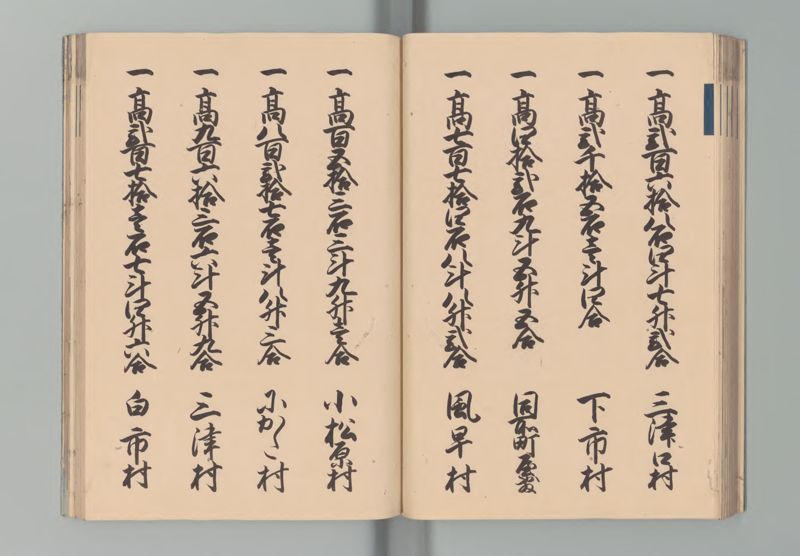 一 高弐百六拾八石四斗七升弐合 三津口村
一 高弐千拾五石壱斗四合 下市村
一 高四拾弐石九斗五升五合 同所町屋敷
一 高七百七拾四石八斗八升弐合 風早村
一 高百五拾三石三斗九升壱合 小松原村
一 高八百弐拾七石壱斗八升三合 小かた村
一 高九百六拾三石六斗五升九合 三津村
一 高弐百七拾壱石七斗四升六合 白市村